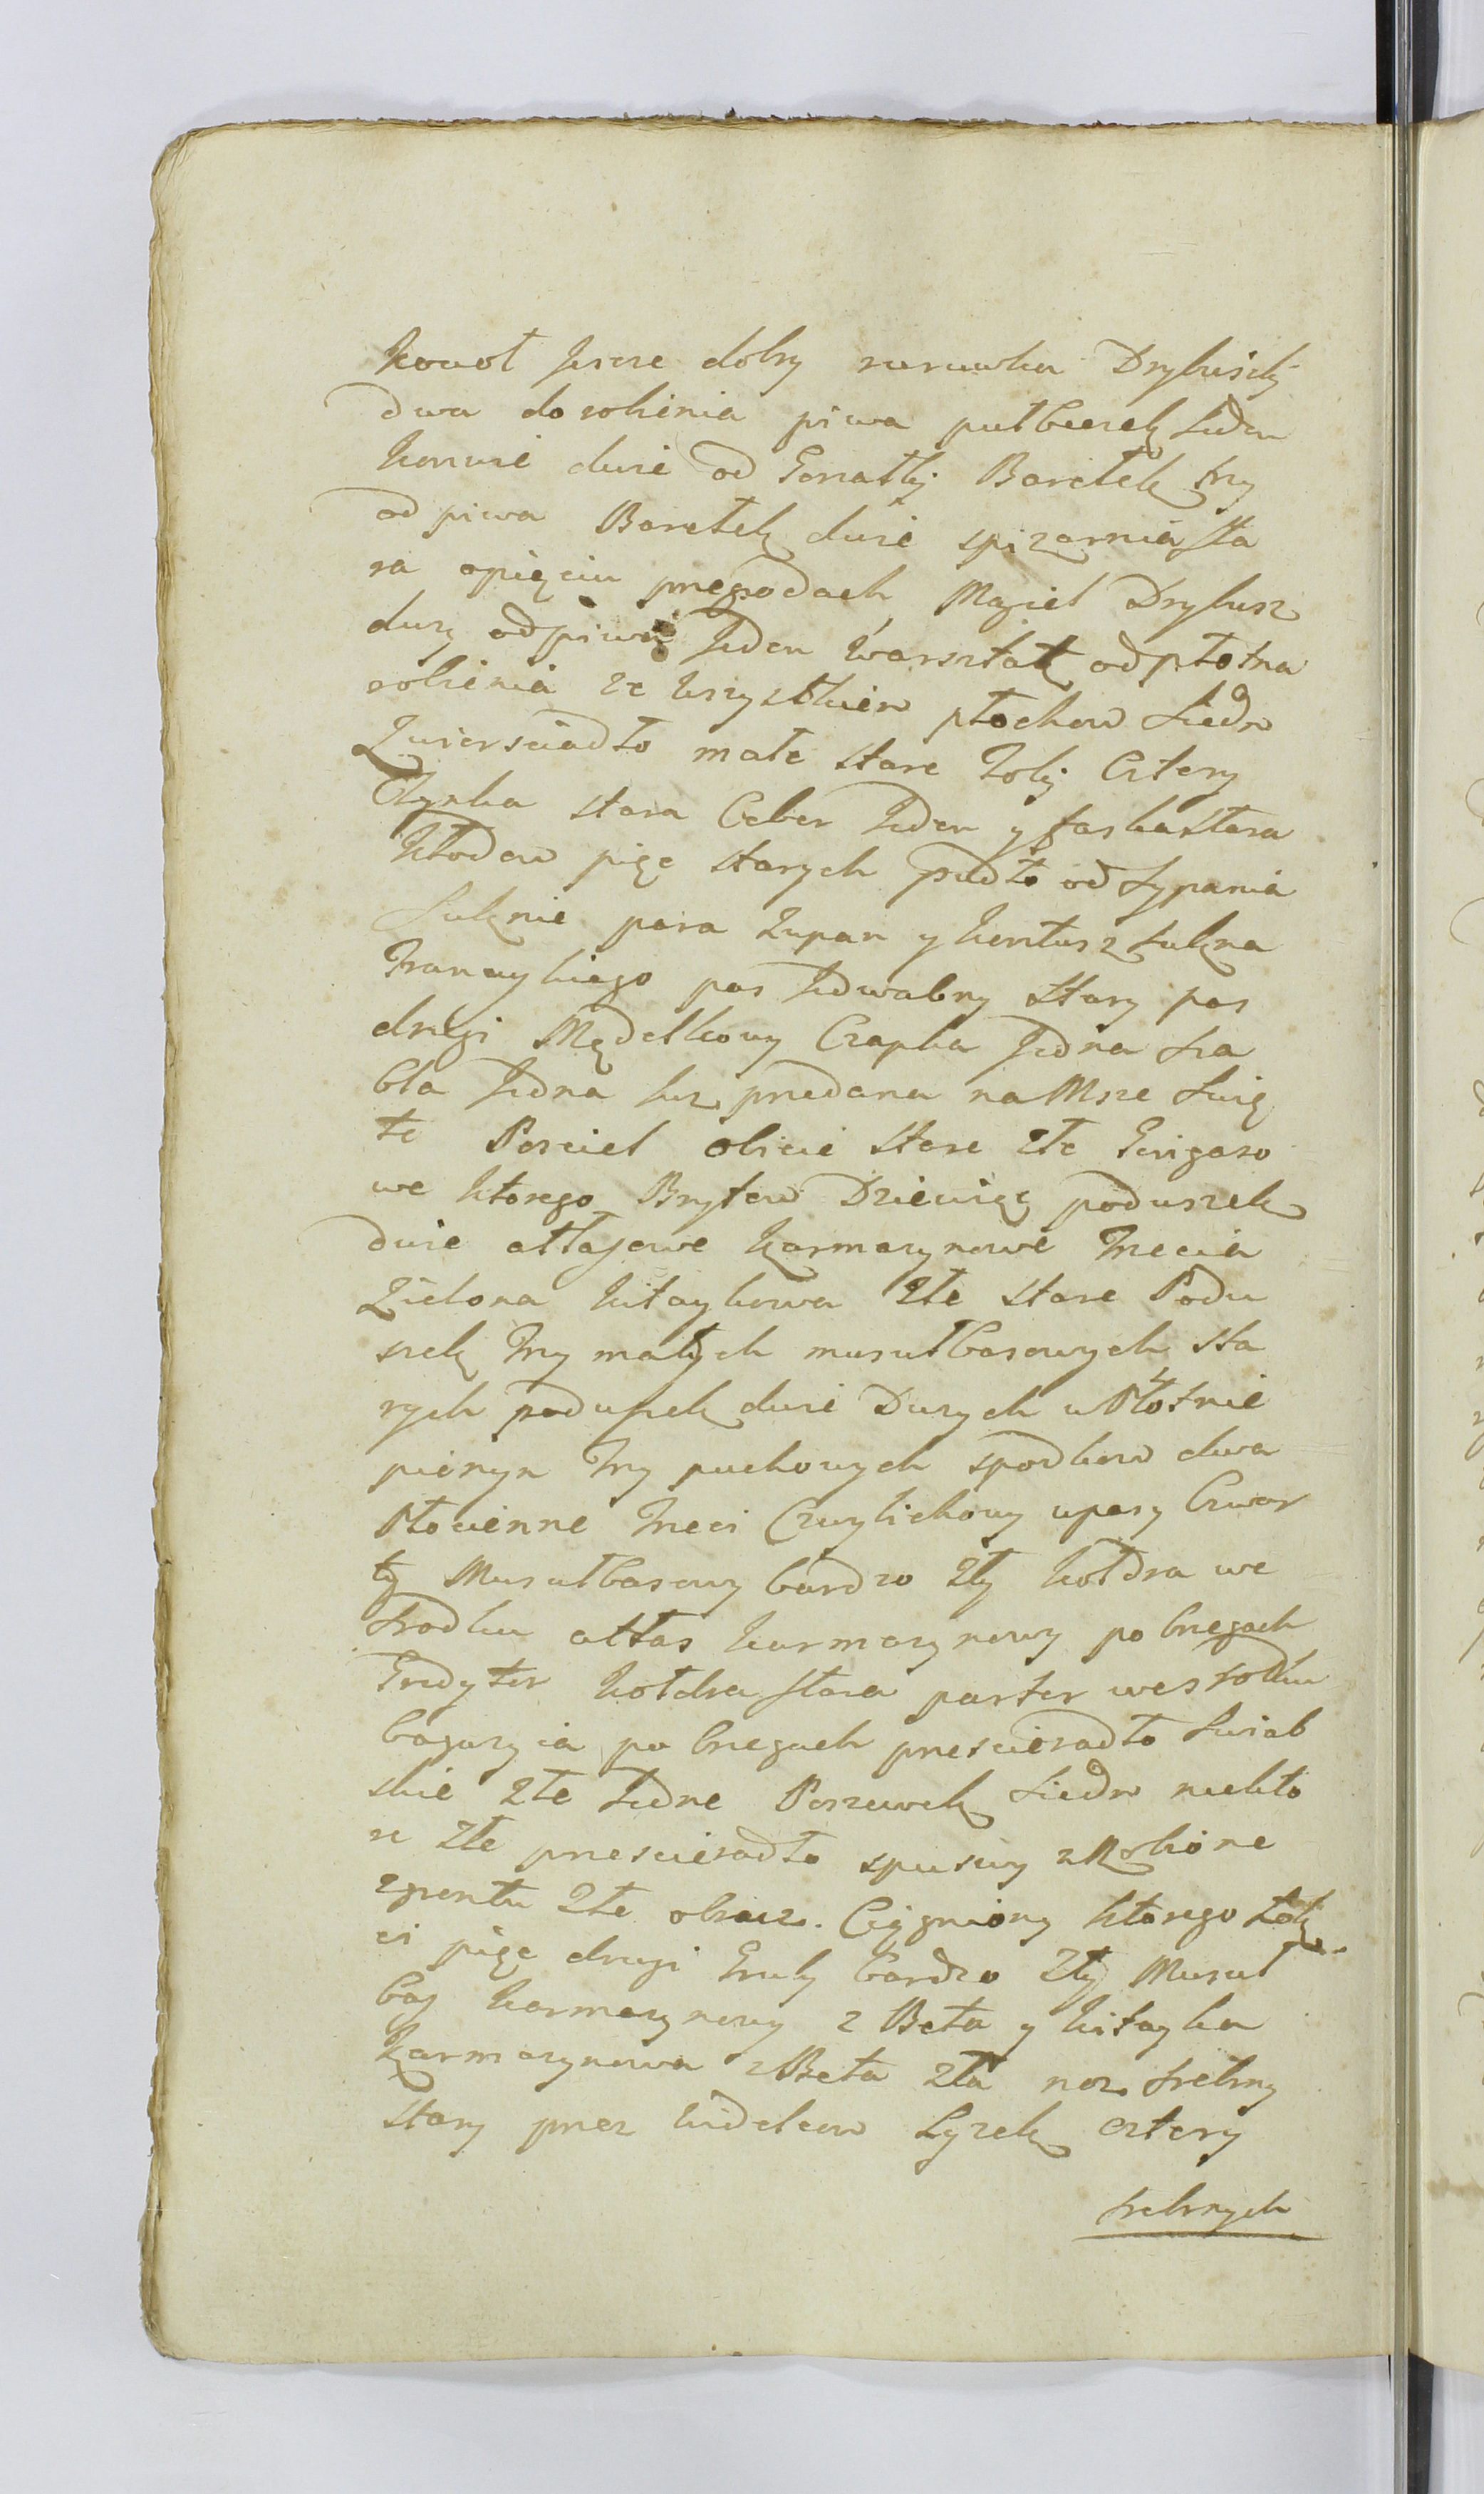 kocioł jescze dobry rurawka Drybusiky
dwa do robienia piwa pułbeczek jeden
konwie dwie od Gorzałky Baretek try
od piwa Baretek dwie spizarnia sta
ra opięciu pregrodach Magiel Drybusz
duzy odpiwa jeden Warsztat odpłotna
robienia ze wszystkiem płochow siedm
Zwiersciadło małe stare Stoły Cztery
stara Ceber jeden y faska stara
kłodow pięc starych pudło od sypania
Suknie para zupan y kontusz sukna
Francuykiego pas jedwabny stary pas
drugi Mędelkowy Czapka jedna sza
bla jedna juz predana na Msze swię
te Posciel obicie stare złe Grigaso
we ktorego Brytow Dziewięc poduszek
dwie attasowe karmazynowe Trecia
Zielona kitaykowa złe stare Podu
szek Try małych musułbasowych sta
rych poduszek dwie Duzych w Płotnie
pierzyn Try puchowych spodkow dwa
Płocienne Treci Cwylichowy wpasy Czwar
ty Musułbasowy bardzo zły kołdra we
srodku attas karmazynowy po bregach
Gredytor kołdra stara parter wesrodku
bagazyia po bregach prescieradło Szwab
skie złe jedne Poszewek siedm niekto
re złe prescieradło spuscizny zRobione
zgruntu złe obrus Ciągniony ktorego łok
ci pięc drugi Gruby bardzo zły Musuł
bas karmazynowy z Beta y kitayka
karmazynowa zBeta zła noz srebrny
stary prez widelcow Lyzek cztery
srebrnych